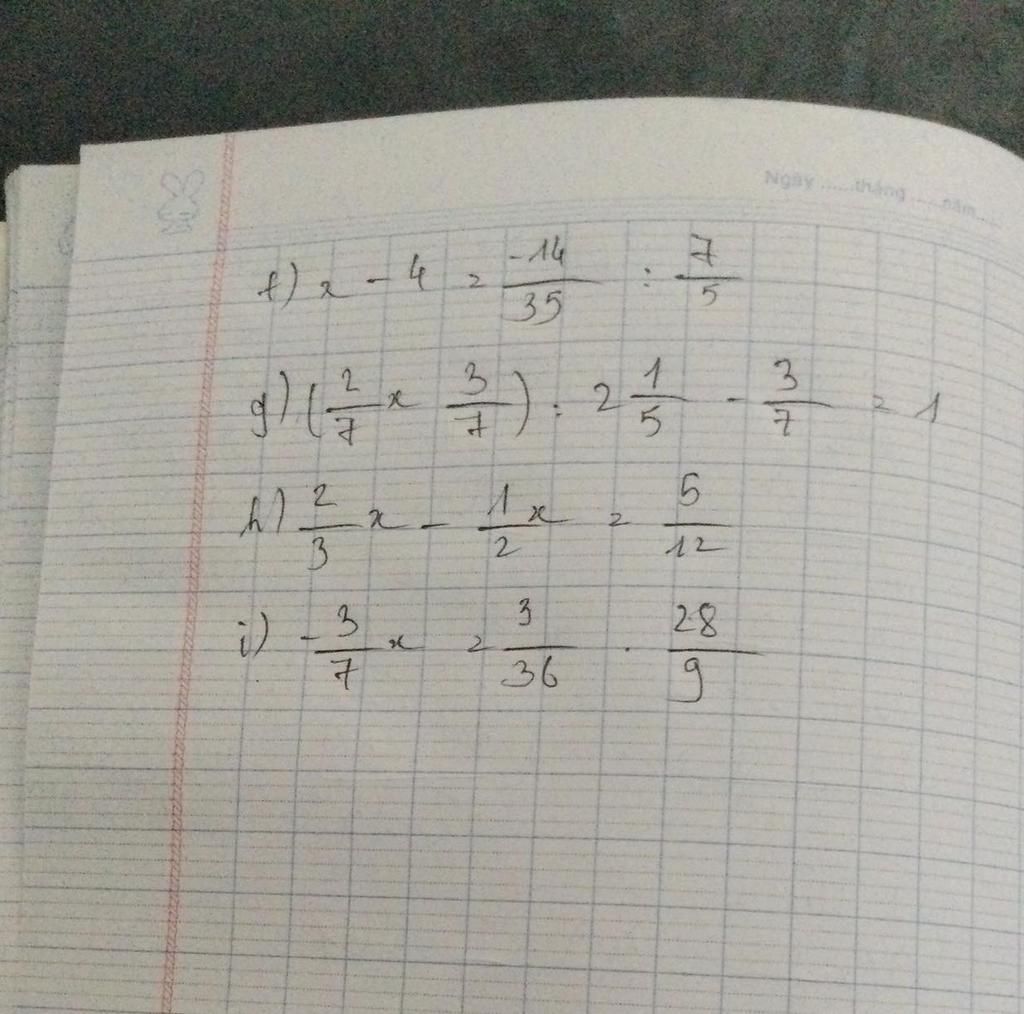 Ngày ......tháng ......năm......
f) x - 4 = -14/35 : 7/5
g) (2/7 x 3/7) : 2 1/5 - 3/7 = 1
h) 2/3 x - 1/2 x = 5/12
i) -3/7 x = 3/36 . 28/9